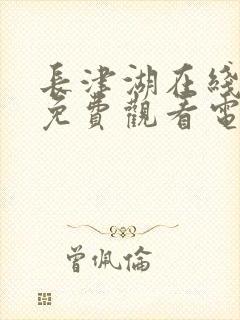 長津湖在綫
免費觀看電
曾佩倫